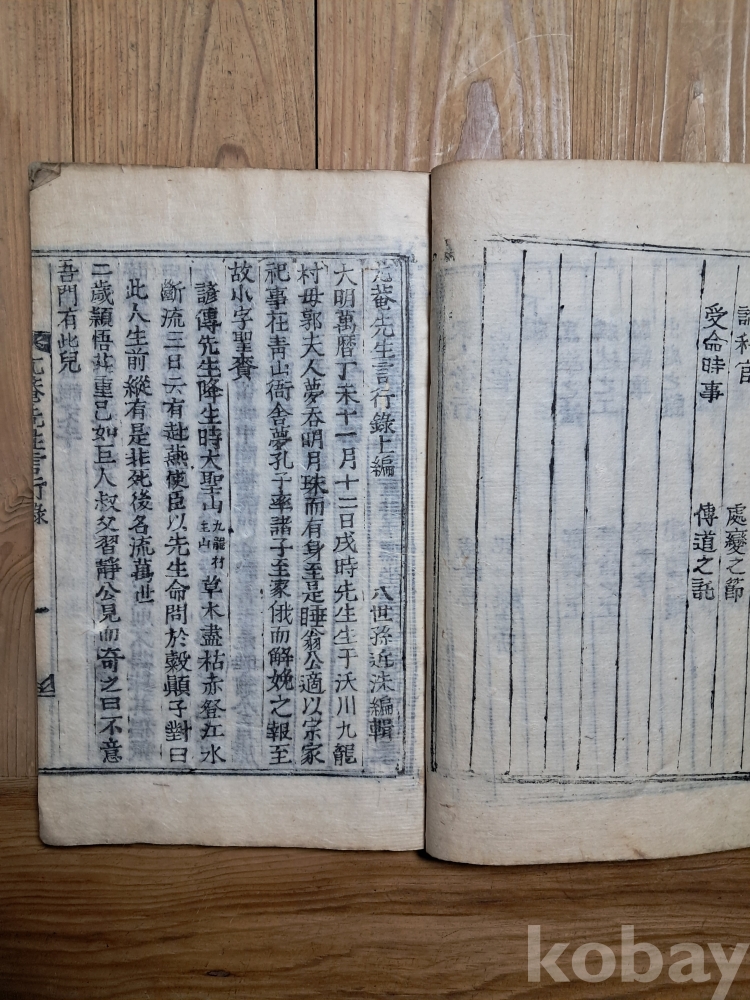 官 處變之節
受命時事 傳道之託
尤菴先生言行錄上編 八世孫近洙編輯
大明萬曆丁未十一月十二日戌時先生生于沃川九龍
村毋郭夫人夢吞明月珠而有身至是睡翁公適以宗家
祀事在靑山衙舍夢孔子率諸子至家俄而解娩之報至
故小字聖賚
諺傳先生降生時大聖山九龍村主山草木盡枯赤登江水
斷流三日云有赴燕使臣以先生命問於轂顚子對曰
此人生前縱有是非死後名流萬世
二歲穎悟莊重已如巨人叔父習靜公見而奇之曰不意
吾門有此兒
尤菴先生言行錄
kobay